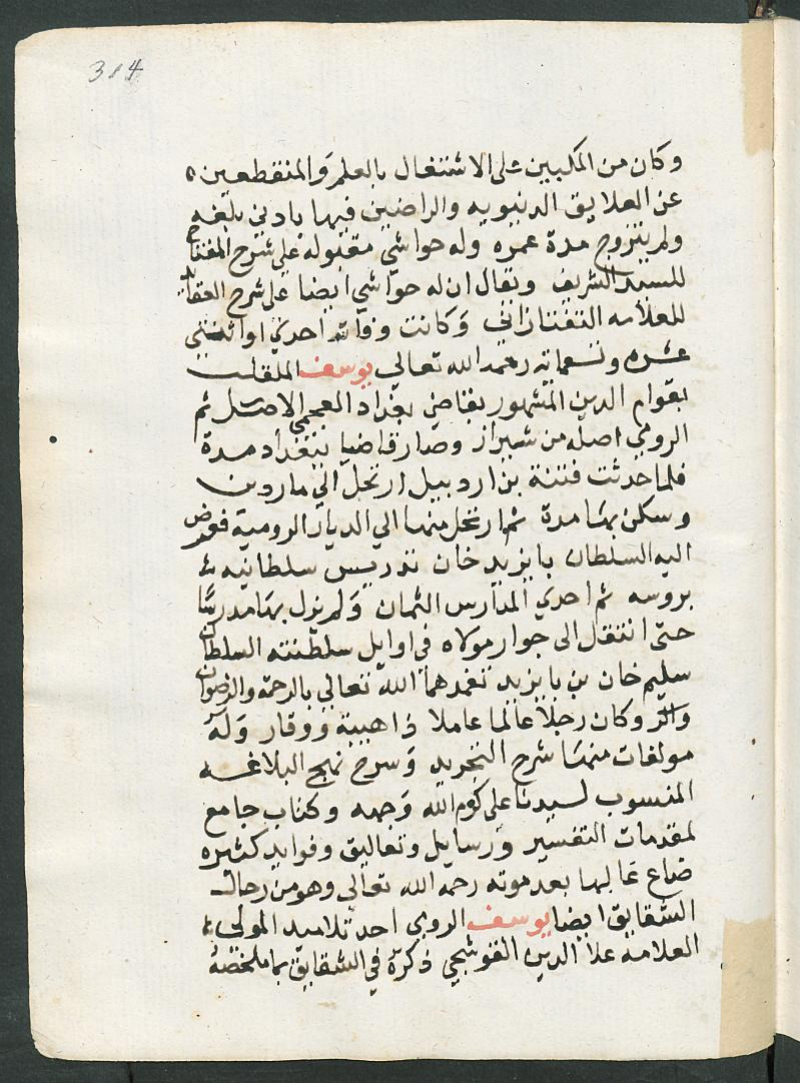 314
وكان من المكبين على الاشتغال بالعلم والمنقطعين
عن العلايق الدنيويه والراضين فيها بادني بلغه
ولم يتزوج مدة عمره وله حواشي مقبوله على شرح المفتاح
للسيد الشريف ويقال ان له حواشي ايضا على شرح العقايد
للعلامه التفتازاني وكانت وفاته احدي او اثنتي
عشره وتسعماية رحمه الله تعالي يوسف الملقلب
بقوام الدين المشهور بقاضي بغداد العجمي الاصل ثم
الرومي اصله من شيراز وصار قاضيا ببغداد مدة
فلما حدثت فتنة بن اردبيل ارتحل الي ماردين
وسكن بها مدة ثم ارتحل منها الي الديار الرومية ففوض
اليه السلطان بايزيد خان تدريس سلطانيه
بروسه ثم احدي المدارس الثمان ولم يزل بها مدرسا
حتى انتقل الى جوار مولاه في اوايل سلطنته السلطان
سليم خان بن بايزيد تغمدهما الله تعالي بالرحمة والرضوان
وكان رجلا عالما عاملا ذا هيبة ووقار وله
مولفات منها شرح التجريد وسرح نهج البلاغه
المنسوب لسيدنا على كرم الله وجهه وكتاب جامع
لمقدمات التفسير ورسايل وتعاليق وفوايد كثيره
ضاع غالبها بعد موته رحمه الله تعالى وهو من رجال
الشقايق ايضا يوسف الرومي احد تلاميد المولي
العلامة علا الدين القوشجي ذكره في الشقايق بما ملخصه